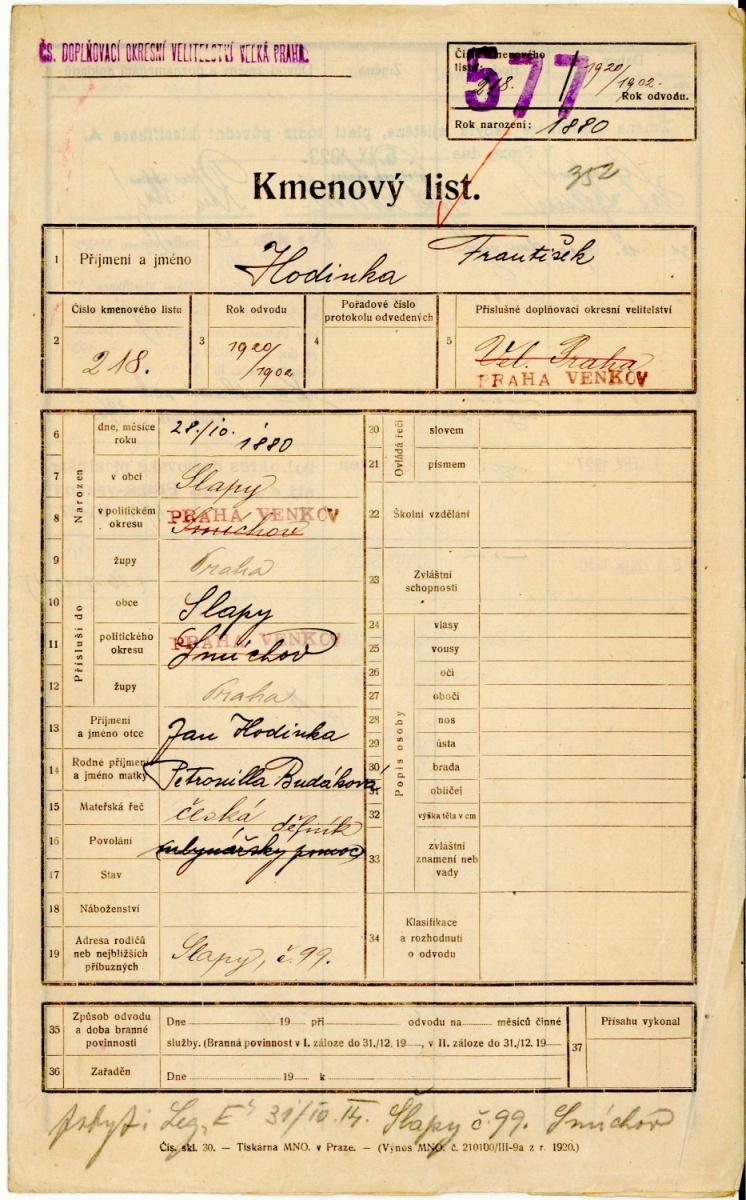 ČS. DOPLŇOVACÍ OKRESNÍ VELITELSTVÍ VELKÁ PRAHA.
Číslo kmenového
listu: 218. / 1920/1902.
577
Rok odvodu.
Rok narození: 1880
352
Kmenový list.
1 Příjmení a jméno Hodinka František
Číslo kmenového listu Rok odvodu Pořadové číslo protokolu odvedených Příslušné doplňovací okresní velitelství
2 218. 3 1920/1902 4 5 Vel. Praha
PRAHA VENKOV
Narozen
6 dne, měsíce roku 28./10. 1880
7 v obci Slapy
8 v politickém okresu Smíchov PRAHA VENKOV
9 župy Praha
Přísluší do
10 obce Slapy
11 politického okresu Smíchov PRAHA VENKOV
12 župy Praha
13 Příjmení a jméno otce Jan Hodinka
14 Rodné příjmení a jméno matky Petronilla Budáková
15 Mateřská řeč česká
16 Povolání mlynářský pomoc dělník
17 Stav
18 Náboženství
19 Adresa rodičů neb nejbližších příbuzných Slapy, č. 99.
Ovládá řeči
20 slovem
21 písmem
22 Školní vzdělání
23 Zvláštní schopnosti
Popis osoby
24 vlasy
25 vousy
26 oči
27 obočí
28 nos
29 ústa
30 brada
31 obličej
32 výška těla v cm
33 zvláštní znamení neb vady
34 Klasifikace a rozhodnutí o odvodu
35 Způsob odvodu a doba branné povinnosti
Dne 19 při odvodu na měsíců činné
služby. (Branná povinnost v I. záloze do 31./12. 19 , v II. záloze do 31./12. 19
36 Zařaděn Dne 19 k
37 Přísahu vykonal
pobyt: Slapy č. 99. Smíchov
Čís. skl. 30. — Tiskárna MNO. v Praze. — (Výnos MNO. č. 210100/III-9a z r. 1920.)